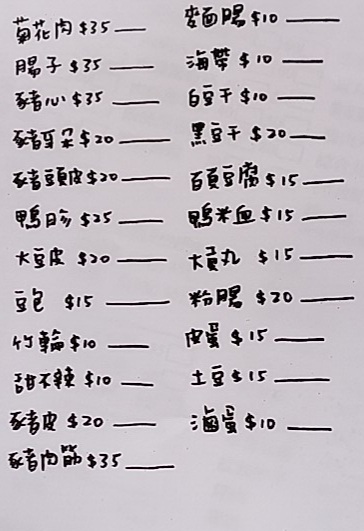 菊花肉 $35
腸子 $35
豬心 $35
豬耳朵 $20
豬頭皮 $20
鴨胗 $25
大豆皮 $20
豆包 $15
竹輪 $10
甜不辣 $10
豬皮 $20
豬肉筋 $35
麵腸 $10
海帶 $10
白豆干 $10
黑豆干 $20
百頁豆腐 $15
鴨米血 $15
大貢丸 $15
粉腸 $20
皮蛋 $15
土豆 $15
滷蛋 $10